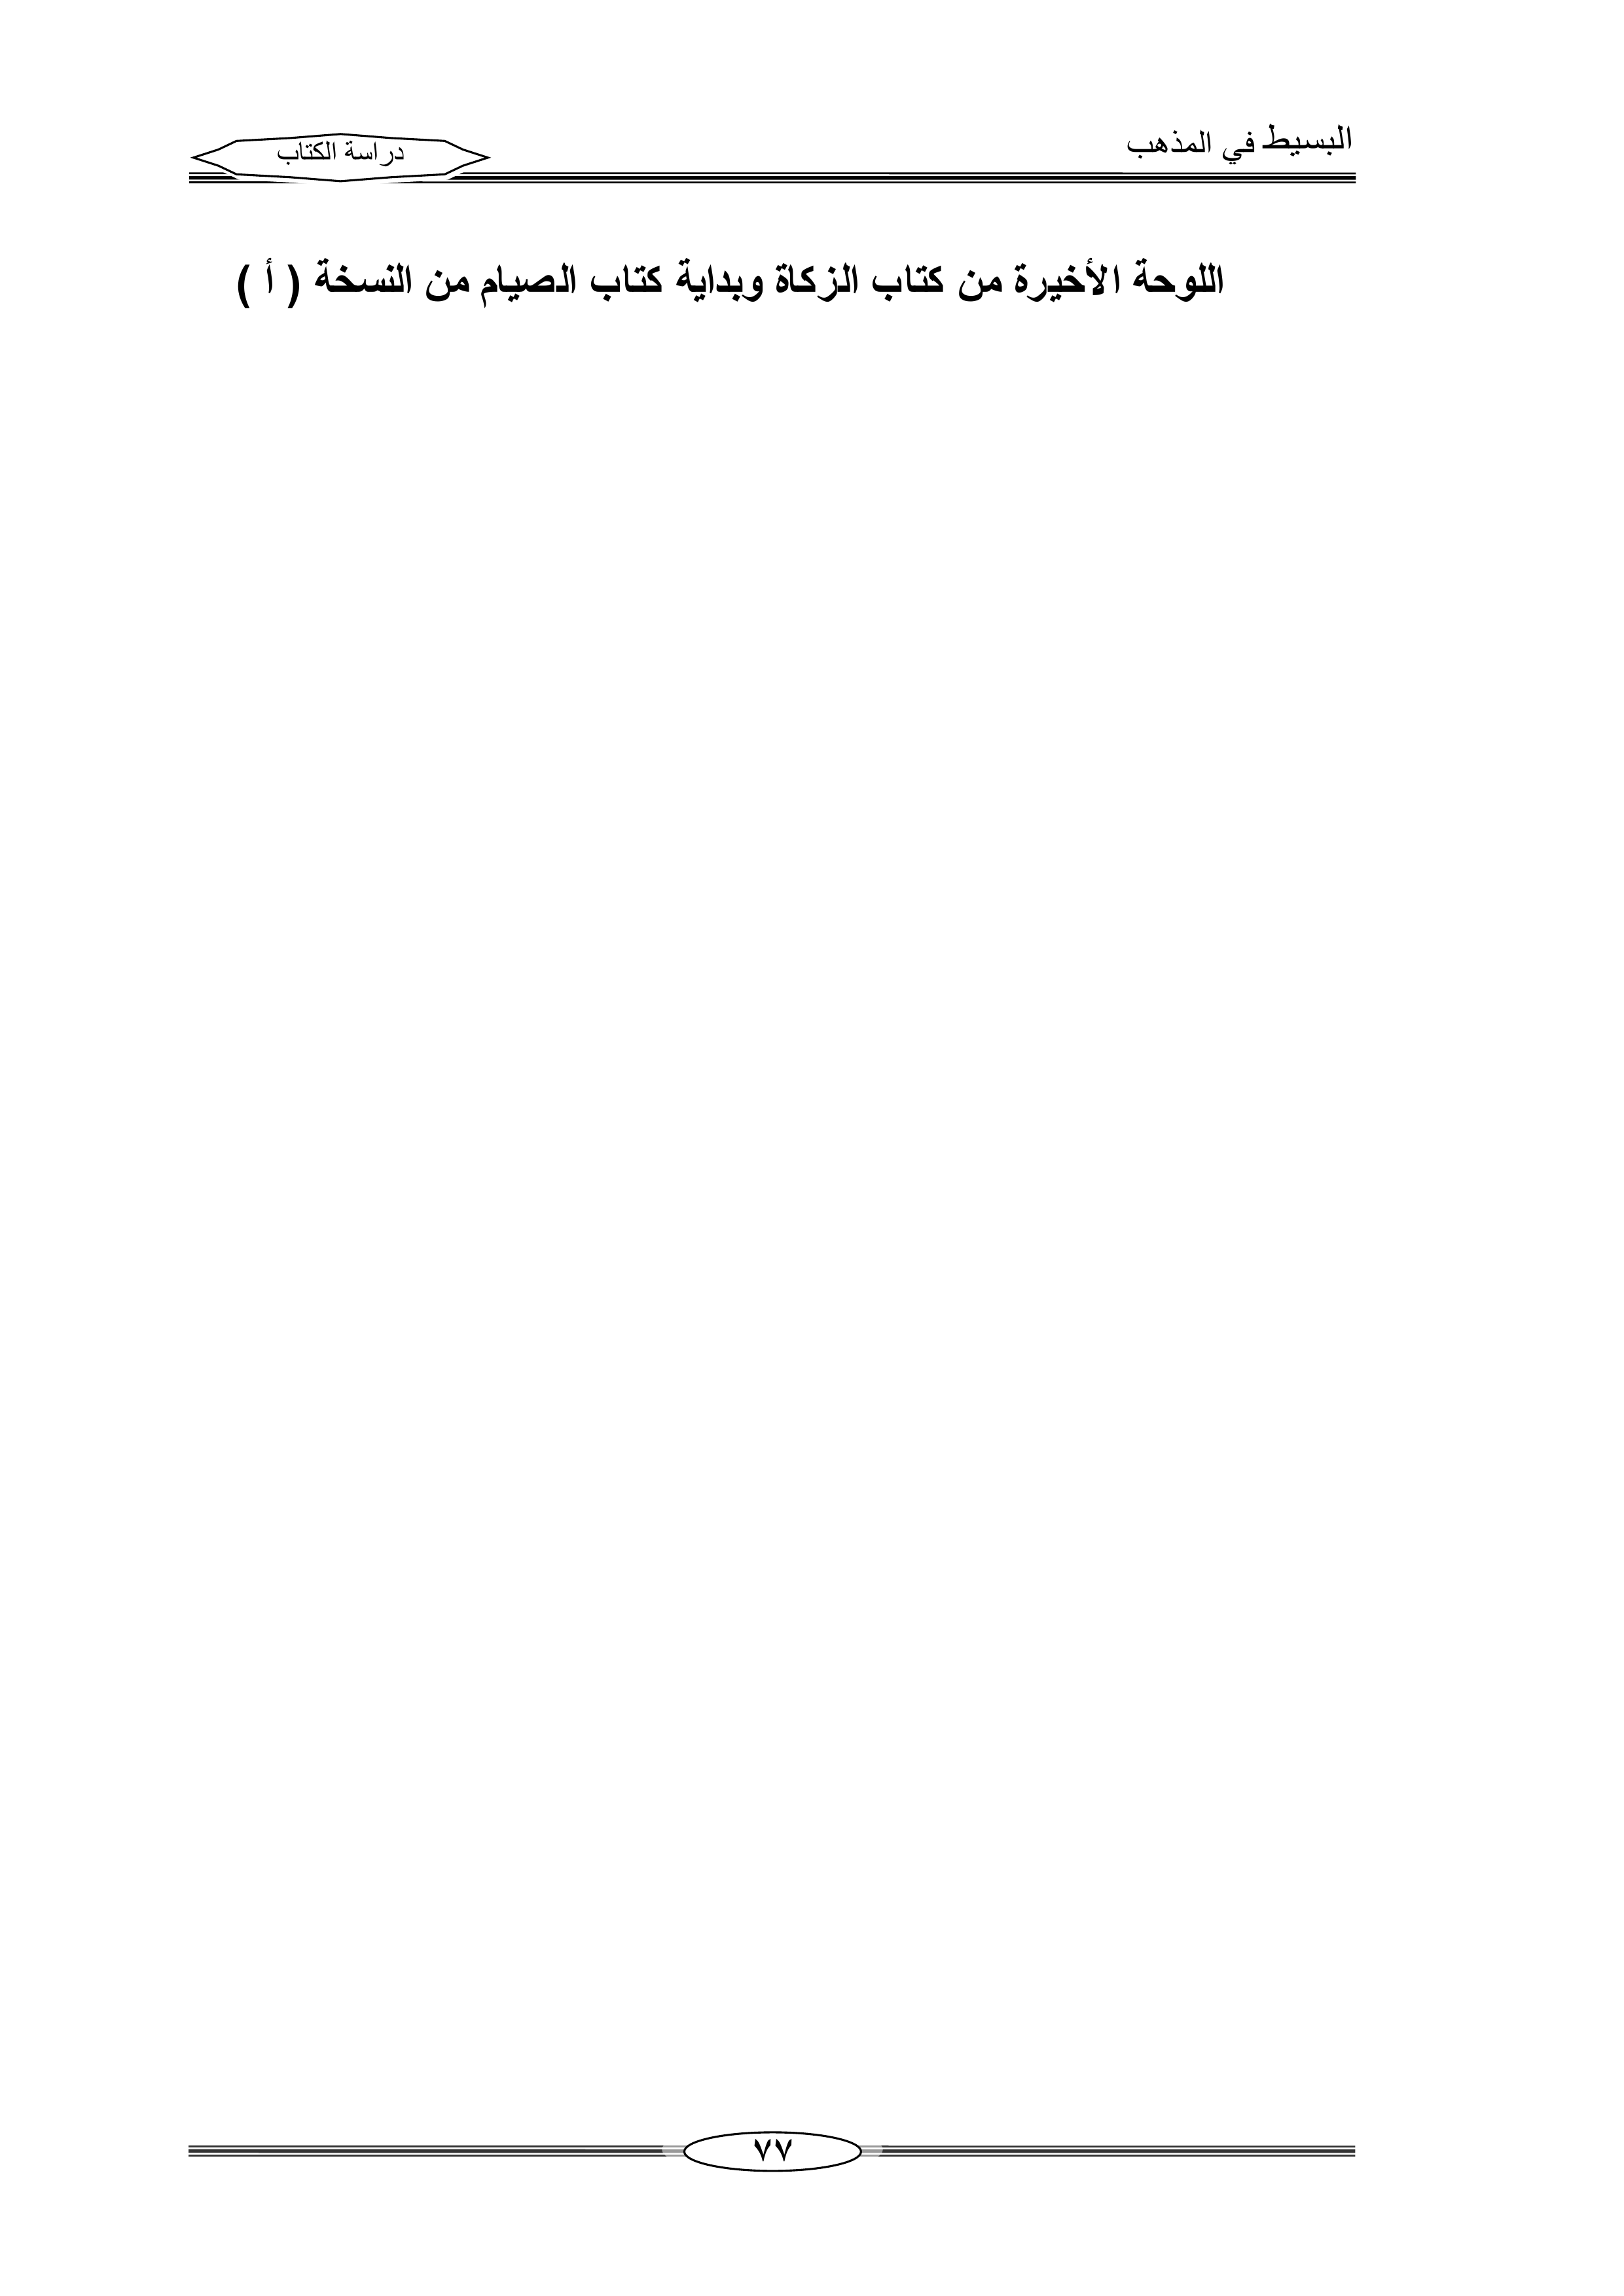 البسيط في المذهب
دراسة الكتاب
اللوحة الأخيرة من كتاب الزكاة وبداية كتاب الصيام من النسخة ( أ )
٧٧